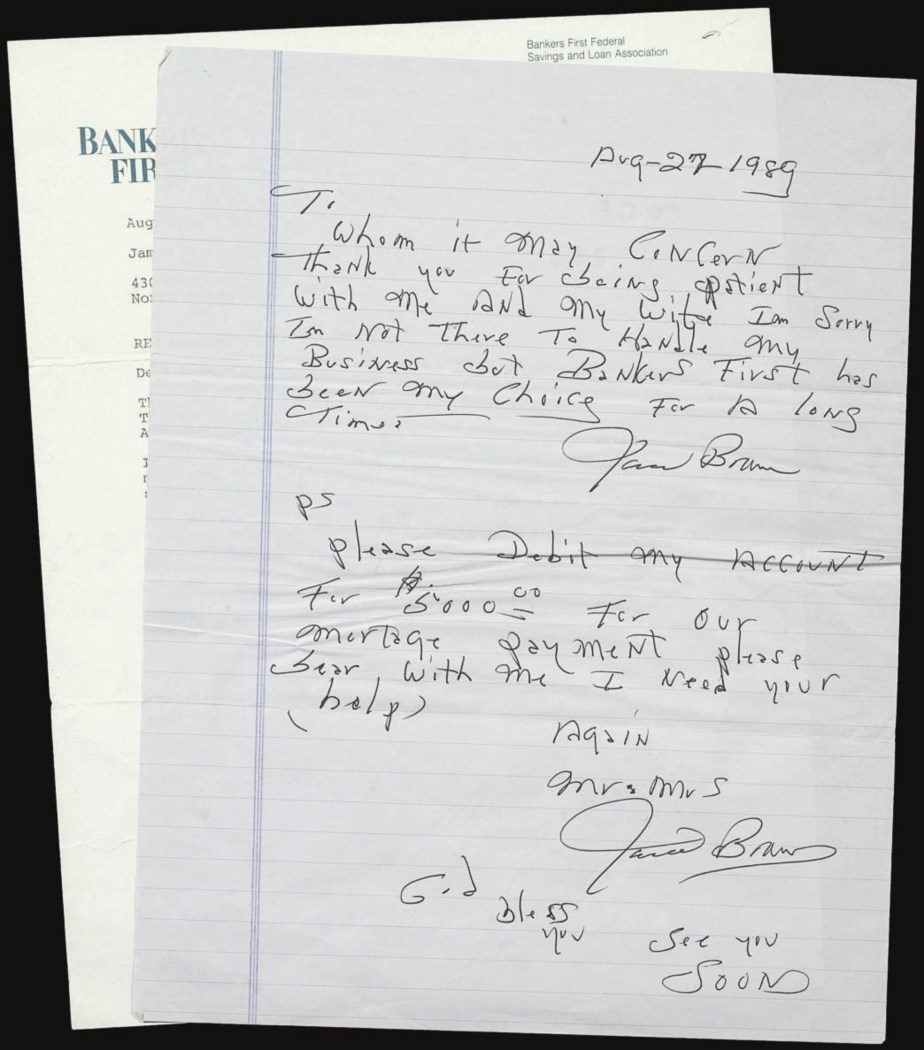 Bankers First Federal
Savings and Loan Association
BANK
FIR
Aug
Jam
430
No
RE
De
Aug-27-1989
To
Whom it may CoNCerN
Thank you For being patient
With me AND my wife Iam Sorry
Im Not There To HaNdle my
BusiNess but BaNkers First has
beeN my Choice For A loNg
Time.
James Brown
ps
please Debit my ACCOUNT
For $5000.00 For our
mortage paymeNt please
bear with me I Need your
(help)
AgaiN
mr & mrs
James Brown
God
bless
you
See you
SooN